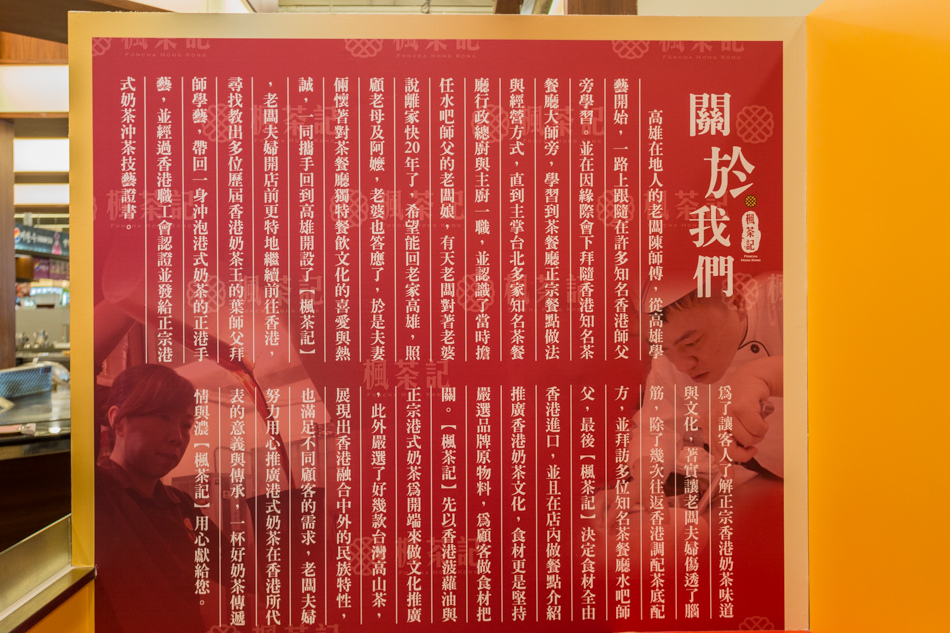 關於我們
楓茶記
高雄在地人的老闆陳師傅，從高雄學
藝開始，一路上跟隨在許多知名香港師父
旁學習。並在因緣際會下拜隨香港知名茶
餐廳大師旁，學習到茶餐廳正宗餐點做法
與經營方式，直到主掌台北多家知名茶餐
廳行政總廚與主廚一職，並認識了當時擔
任水吧師父的老闆娘，有天老闆對著老婆
說離家快20年了，希望能回老家高雄，照
顧老母及阿嬤，老婆也答應了，於是夫妻
倆懷著對茶餐廳獨特餐飲文化的喜愛與熱
誠，一同攜手回到高雄開設了【楓茶記】
，老闆夫婦開店前更特地繼續前往香港，
尋找教出多位歷屆香港奶茶王的葉師父拜
師學藝，帶回一身沖泡港式奶茶的正港手
藝，並經過香港職工會認證並發給正宗港
式奶茶沖茶技藝證書。
為了讓客人了解正宗香港奶茶味道
與文化，著實讓老闆夫婦傷透了腦
筋，除了幾次往返香港調配茶底配
方，並拜訪多位知名茶餐廳水吧師
父，最後【楓茶記】決定食材全由
香港進口，並且在店內做餐點介紹
推廣香港奶茶文化，食材更是堅持
嚴選品牌原物料，為顧客做食材把
關。【楓茶記】先以香港菠蘿油與
正宗港式奶茶為開端來做文化推廣
，此外嚴選了好幾款台灣高山茶，
展現出香港融合中外的民族特性，
也滿足不同顧客的需求，老闆夫婦
努力用心推廣港式奶茶在香港所代
表的意義與傳承，一杯好奶茶傳遞
情與濃【楓茶記】用心獻給您。